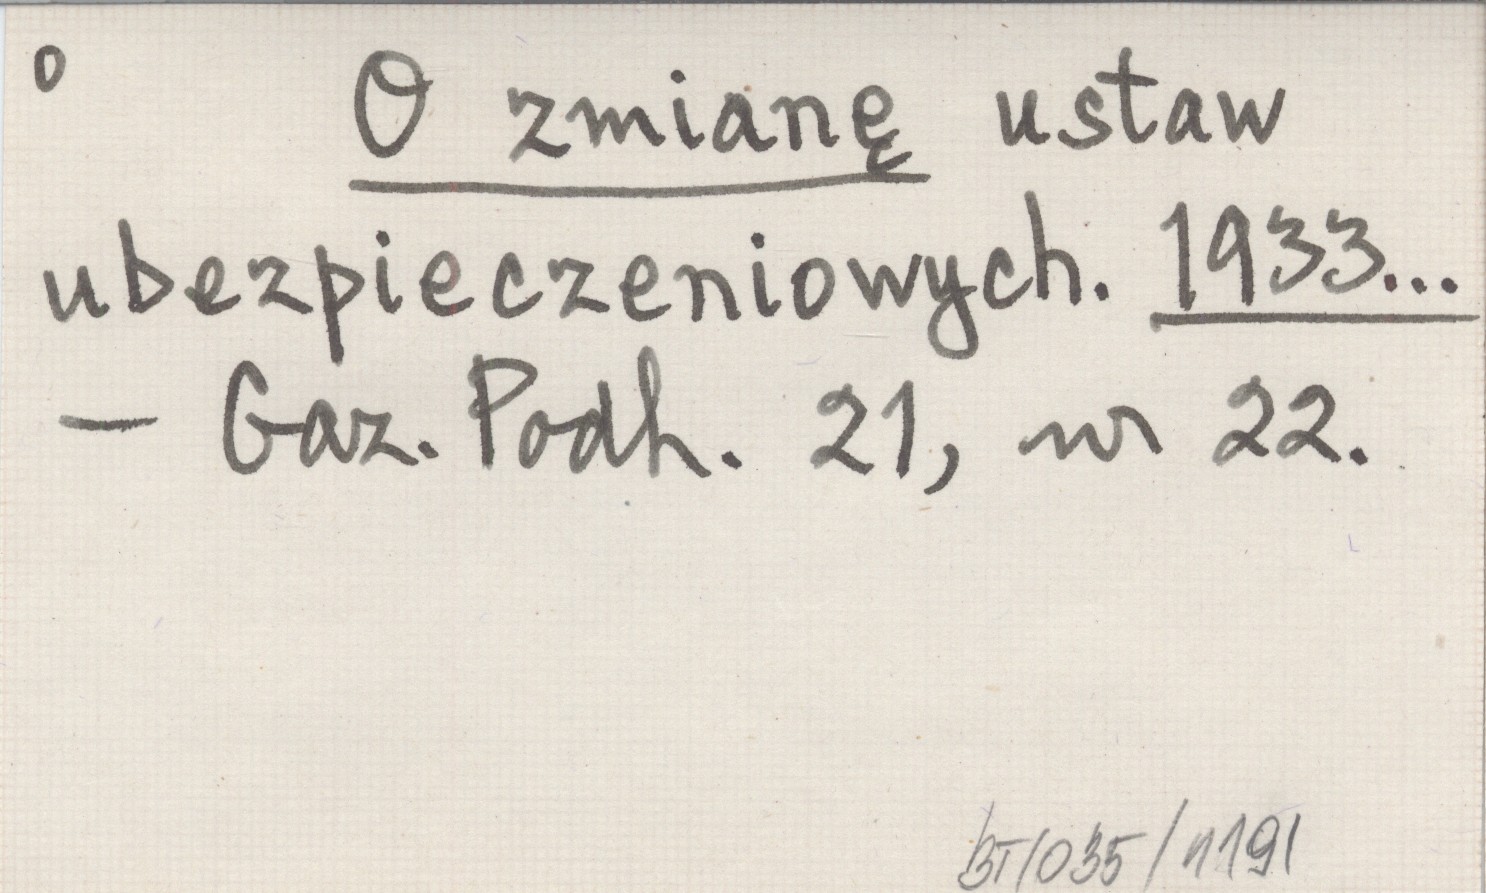 o O zmianę ustaw
ubezpieczeniowych. 1933...
— Gaz. Podh. 21, nr 22.
BT/035/1191